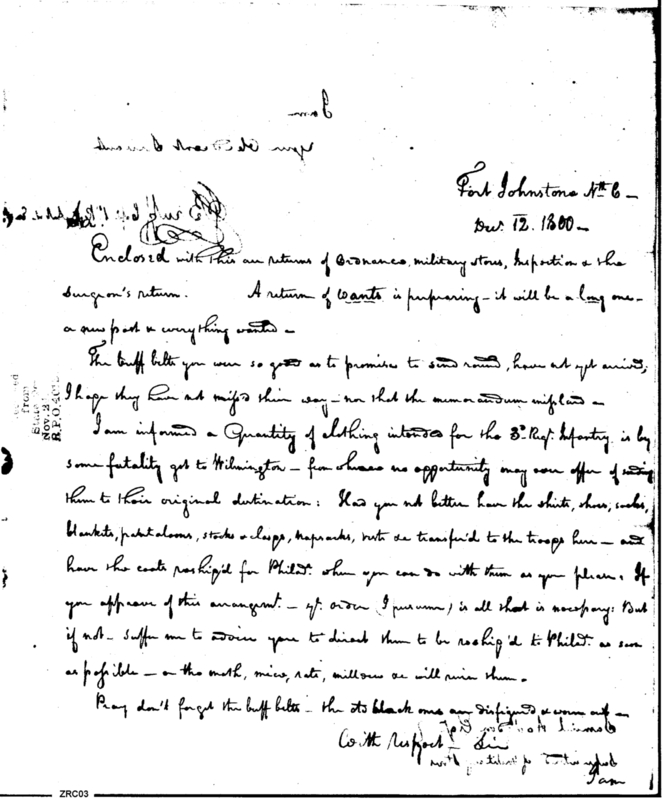 Fort Johnstone Nth C—
Decr. 12. 1800—
Enclosed with this are returns of Ordnance, military stores, Inspection & the
Surgeon's return. A return of wants is preparing—it will be a long one—
a new post & everything wanted—
The buff belts you were so good as to promise to send round, have not yet arrived,
I hope they have not miss'd their way—nor that the memorandum misplaced—
I am informed a Quantity of clothing intended for the 3d. Regt. Infantry is by
some fatality got to Wilmington—from whence no opportunity may ever offer of sending
them to their original destination: Had you not better have the shirts, shoes, socks,
blankets, pantaloons, stocks & clasps, knapsacks, vests &c transfer'd to the troops here—and
have the coats reship'd for Philda. when you can do with them as you please. If
you approve of this arrangemt.—yr. order (I presume) is all that is necessary: But
if not—suffer me to advise you to direct them to be reship'd to Philda. as soon
as possible—or the moth, mice, rats, mildew &c will ruin them.
Pray don't forget the buff belts—the old black ones are disfigured & worn out—
With respect—Sir
I am
from
State
Nov. 21
ZRC03